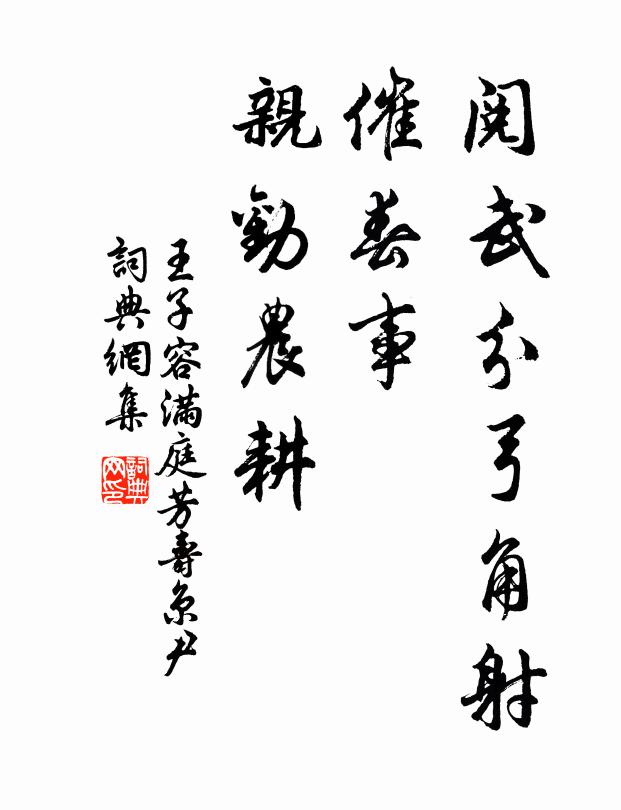 閱武分弓角射
催春事
親勸農耕
王子容滿庭芳壽京尹
詞典網集
詞典
网印